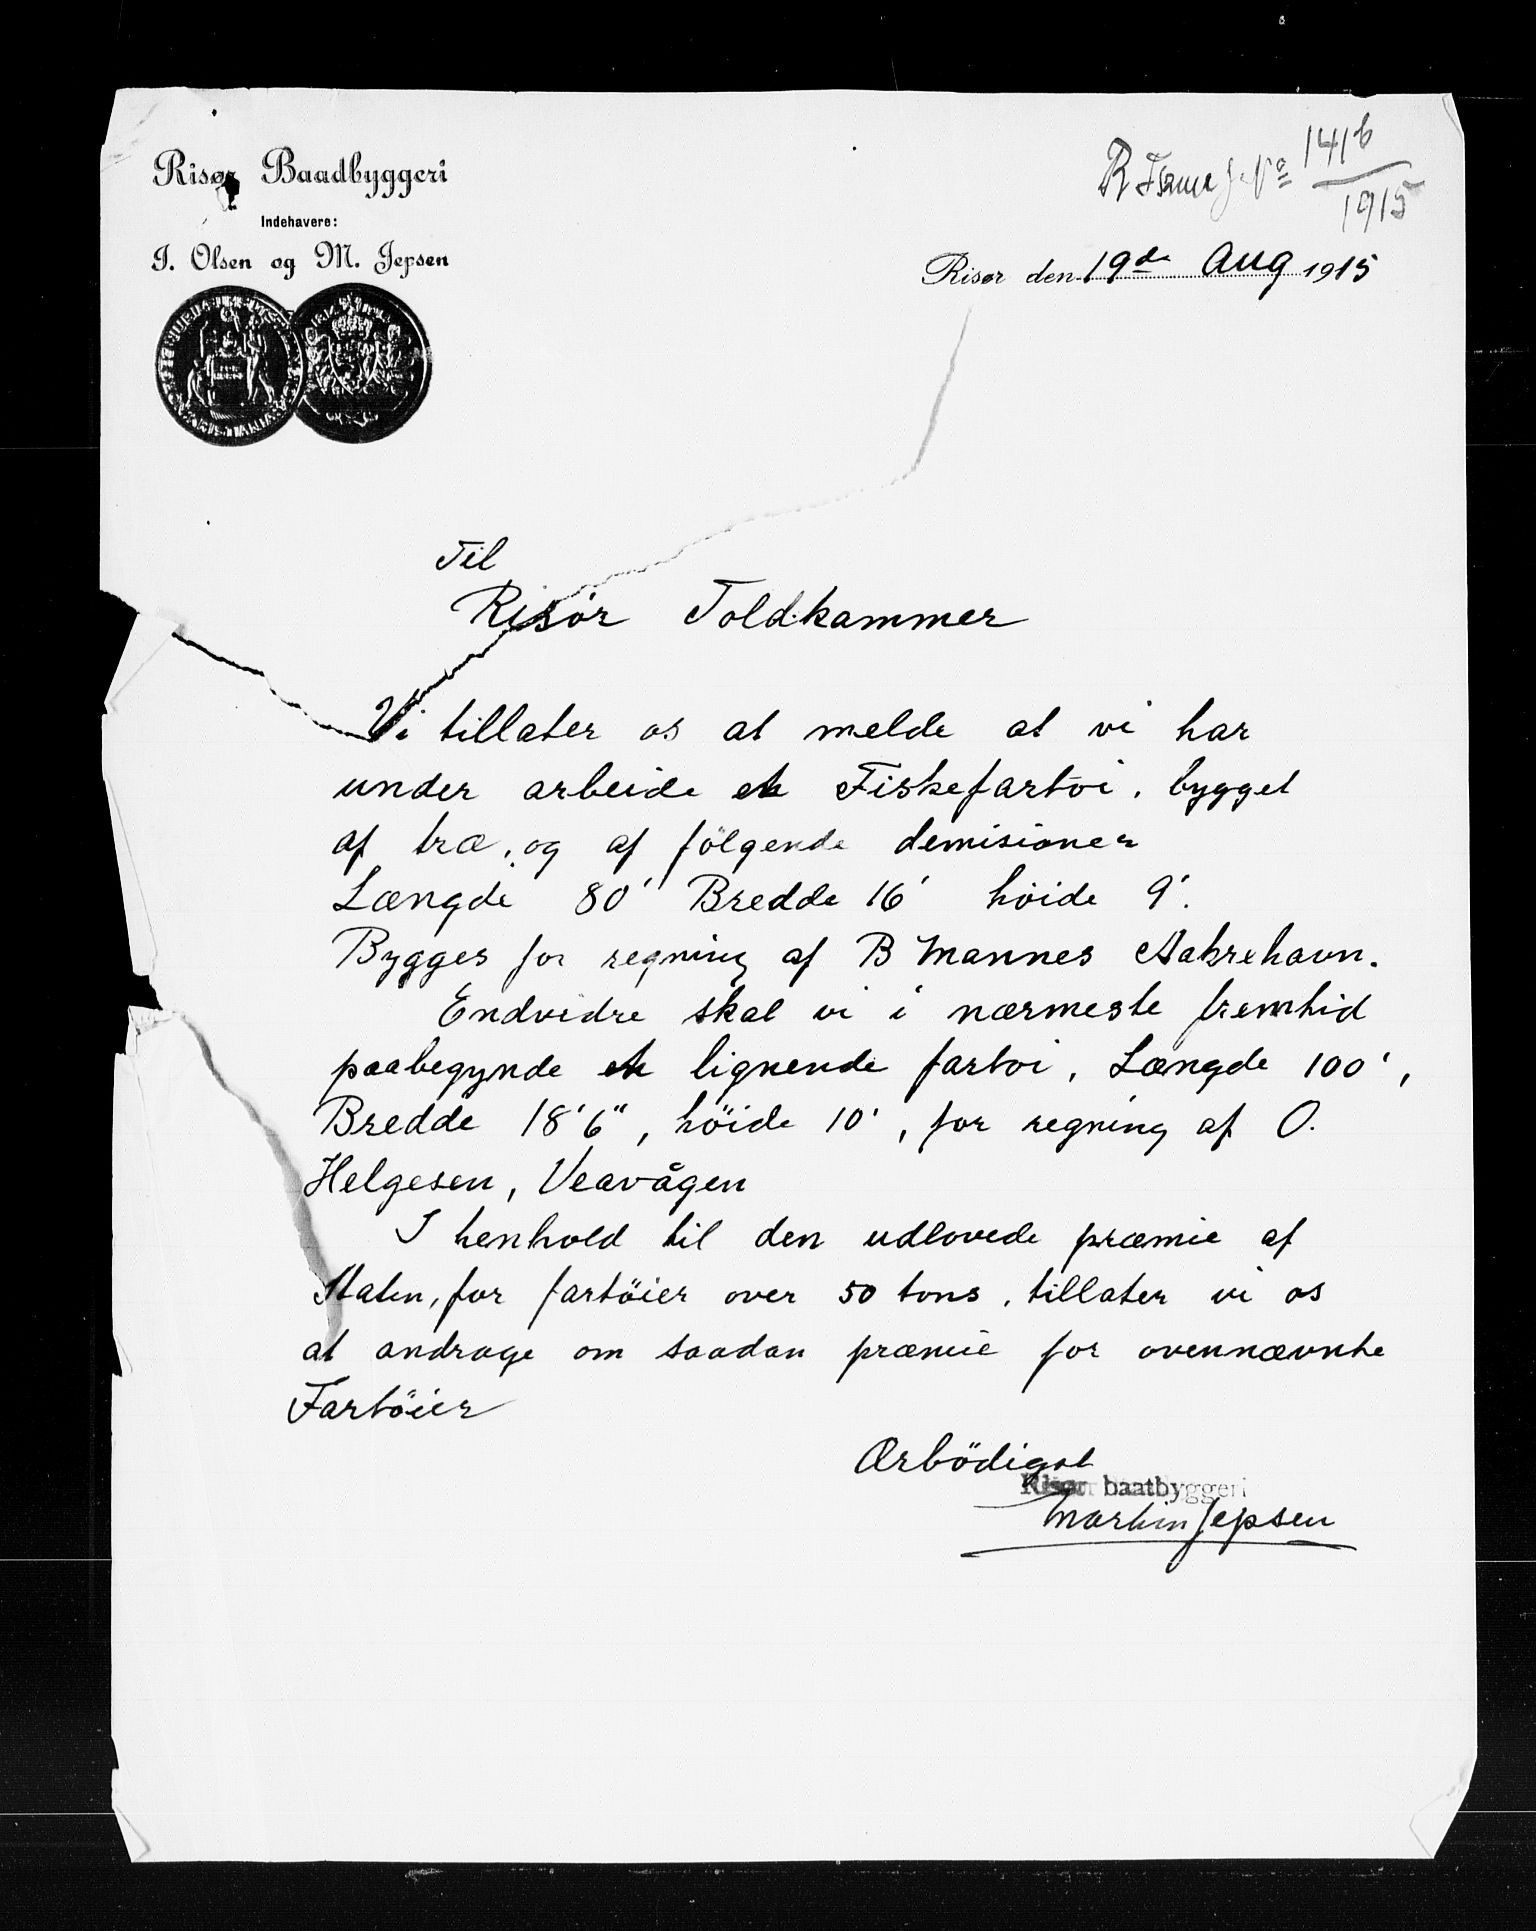 Risør Baadbyggeri
Indehavere:
J. Olsen og M. Jepsen
1416
1915
Risør den 19de Aug 1915
Til
Risør Toldkammer
Vi tillater os at melde at vi har
under arbeide et Fiskefartöi, bygget
af træ, og af fölgende demisioner
Længde 80' Bredde 16' höide 9'.
Bygges for regning af B Mannes Aakrehavn.
Endvidre skal vi i nærmeste fremtid
paabegynde et lignende fartoi, Længde 100',
Bredde 18'6", höide 10', for regning af O.
Helgesen, Veavågen
I henhold til den udlovede præmie af
Staten, for fartöier over 50 tons, tillater vi os
at andrage om saadan præmie for ovennævnte
Fartöier
Ærbödigst
Risør baatbyggeri
Martin Jepsen